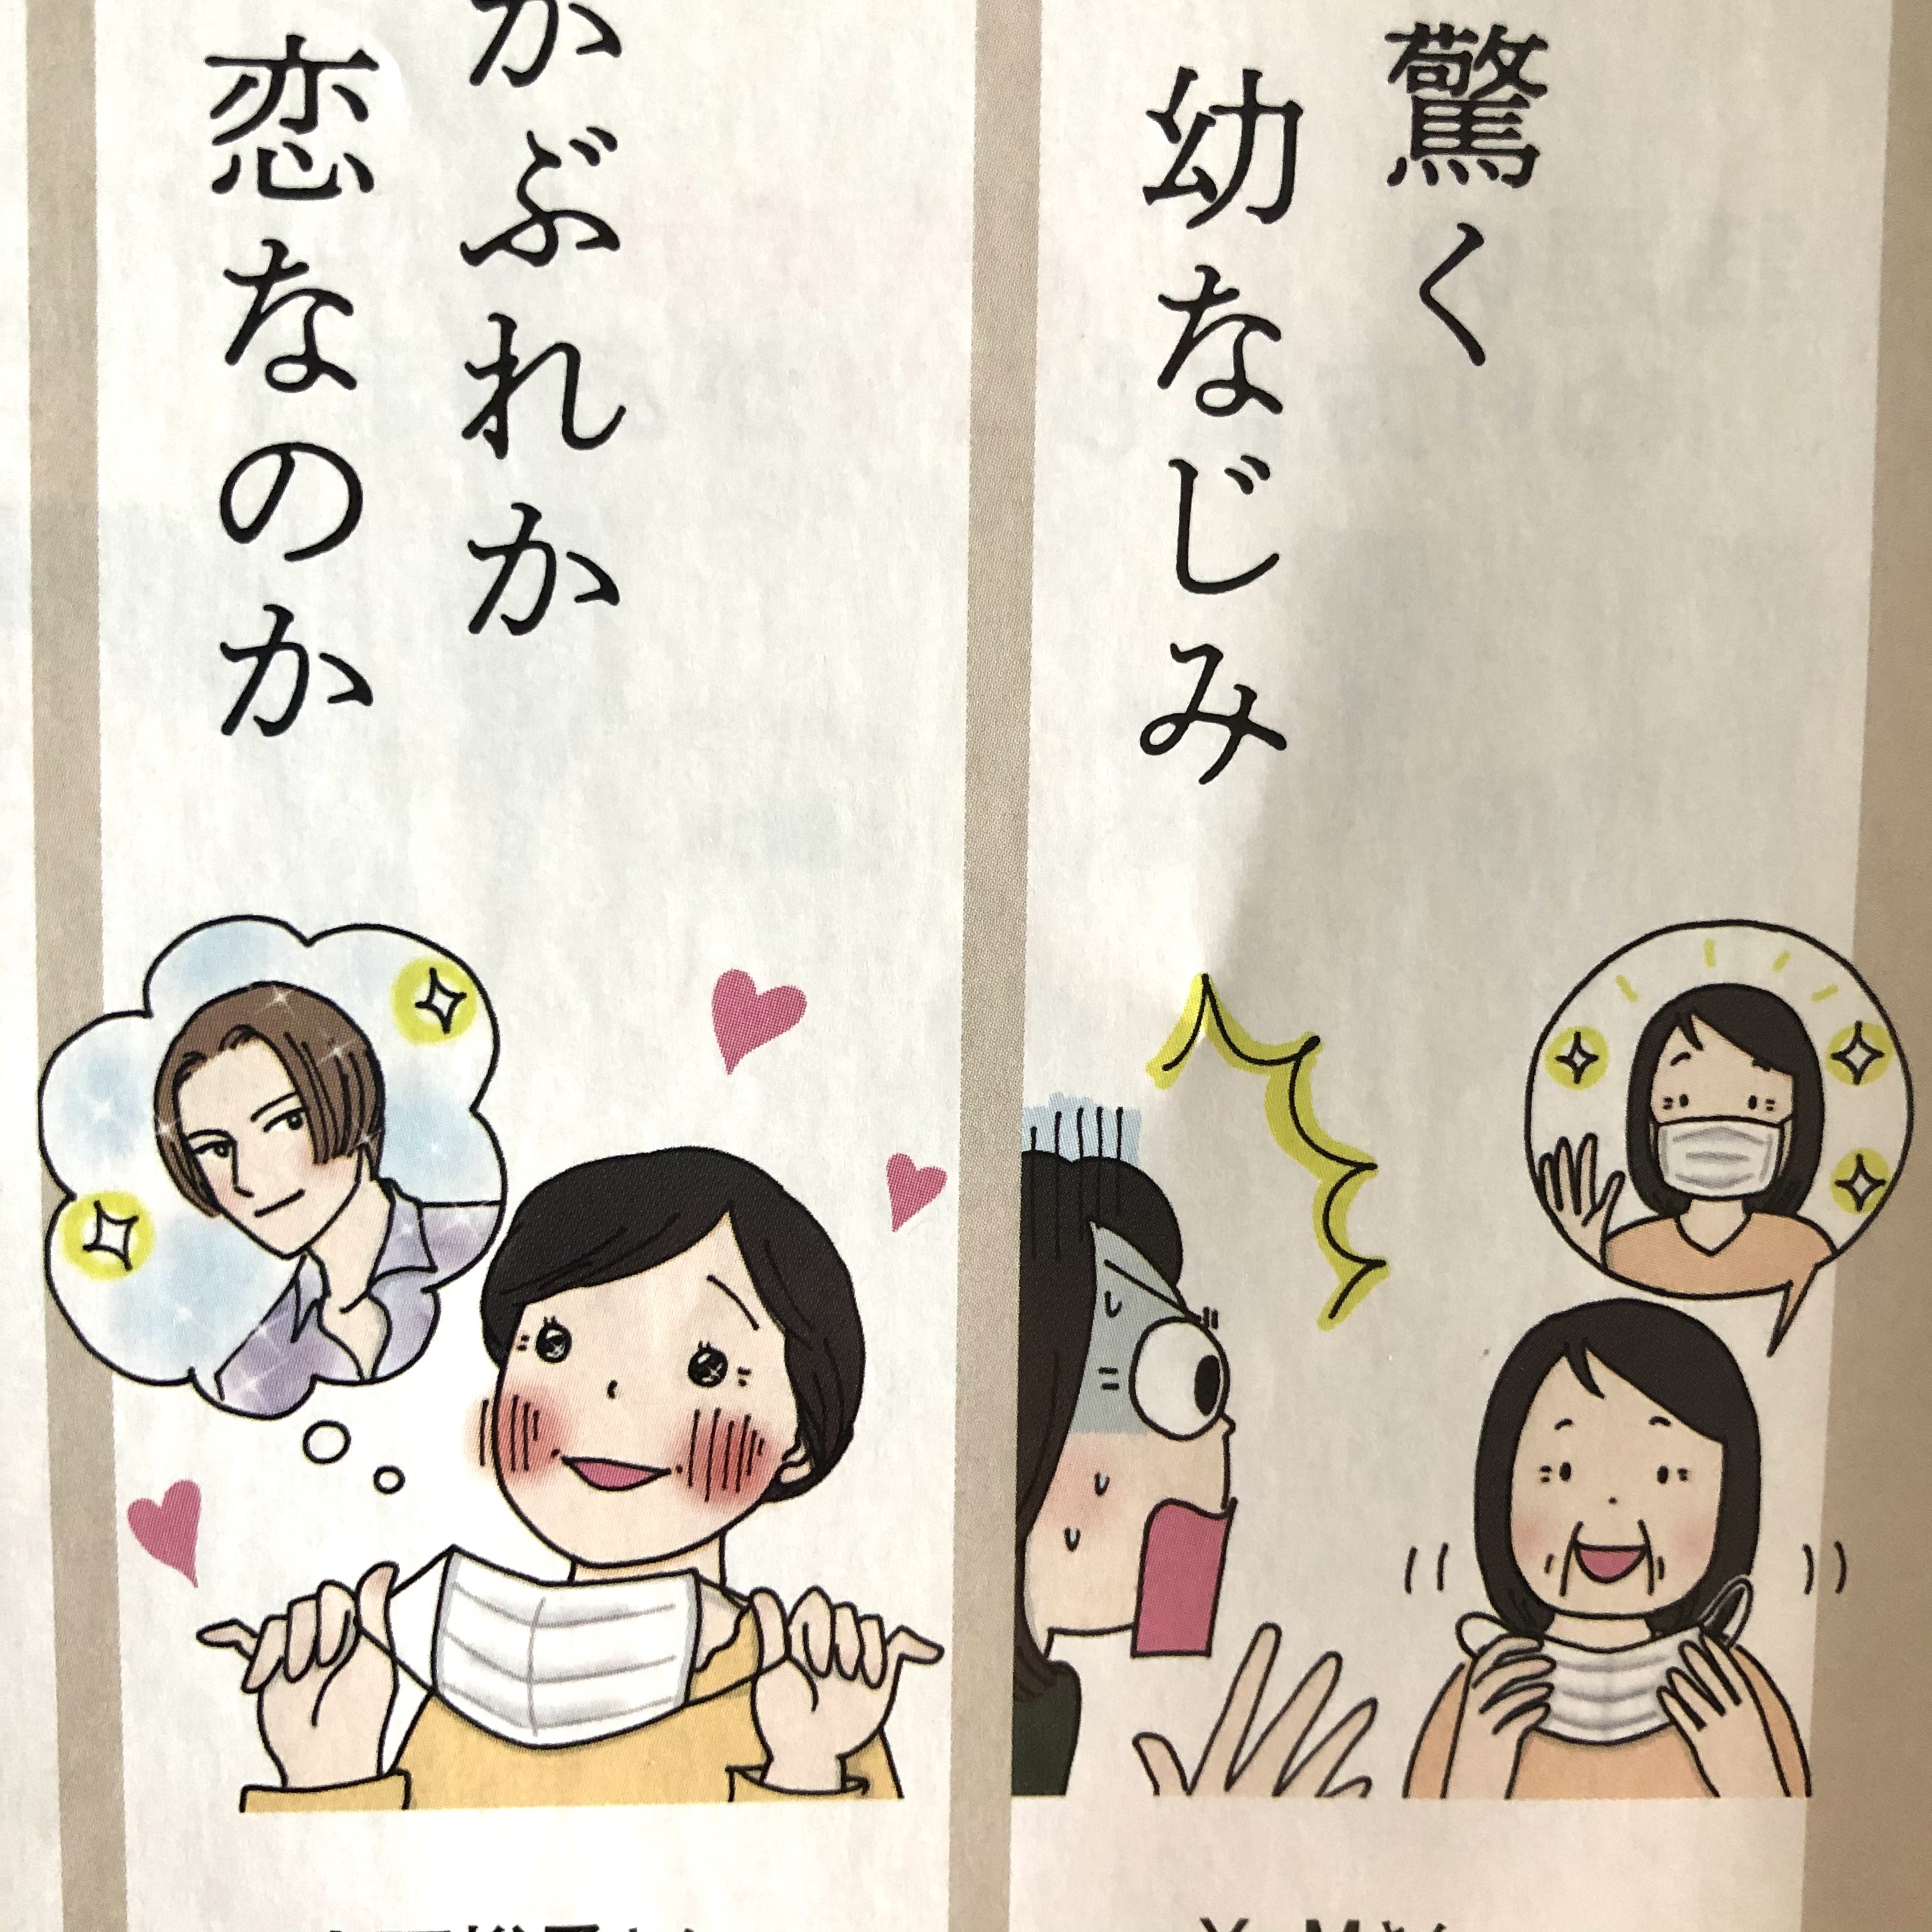 驚く
幼なじみ
Y・Mさん
かぶれか
恋なのか